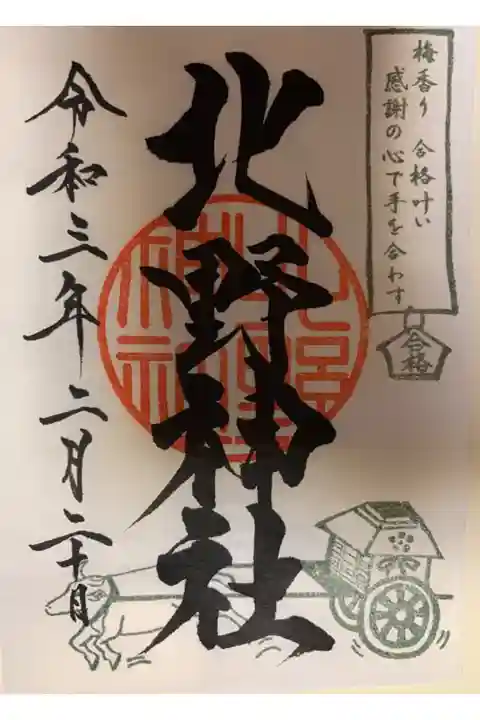 梅香り 合格叶い
感謝の心で手を合わす
合格
北野神社
北野神社
令和三年二月二十日